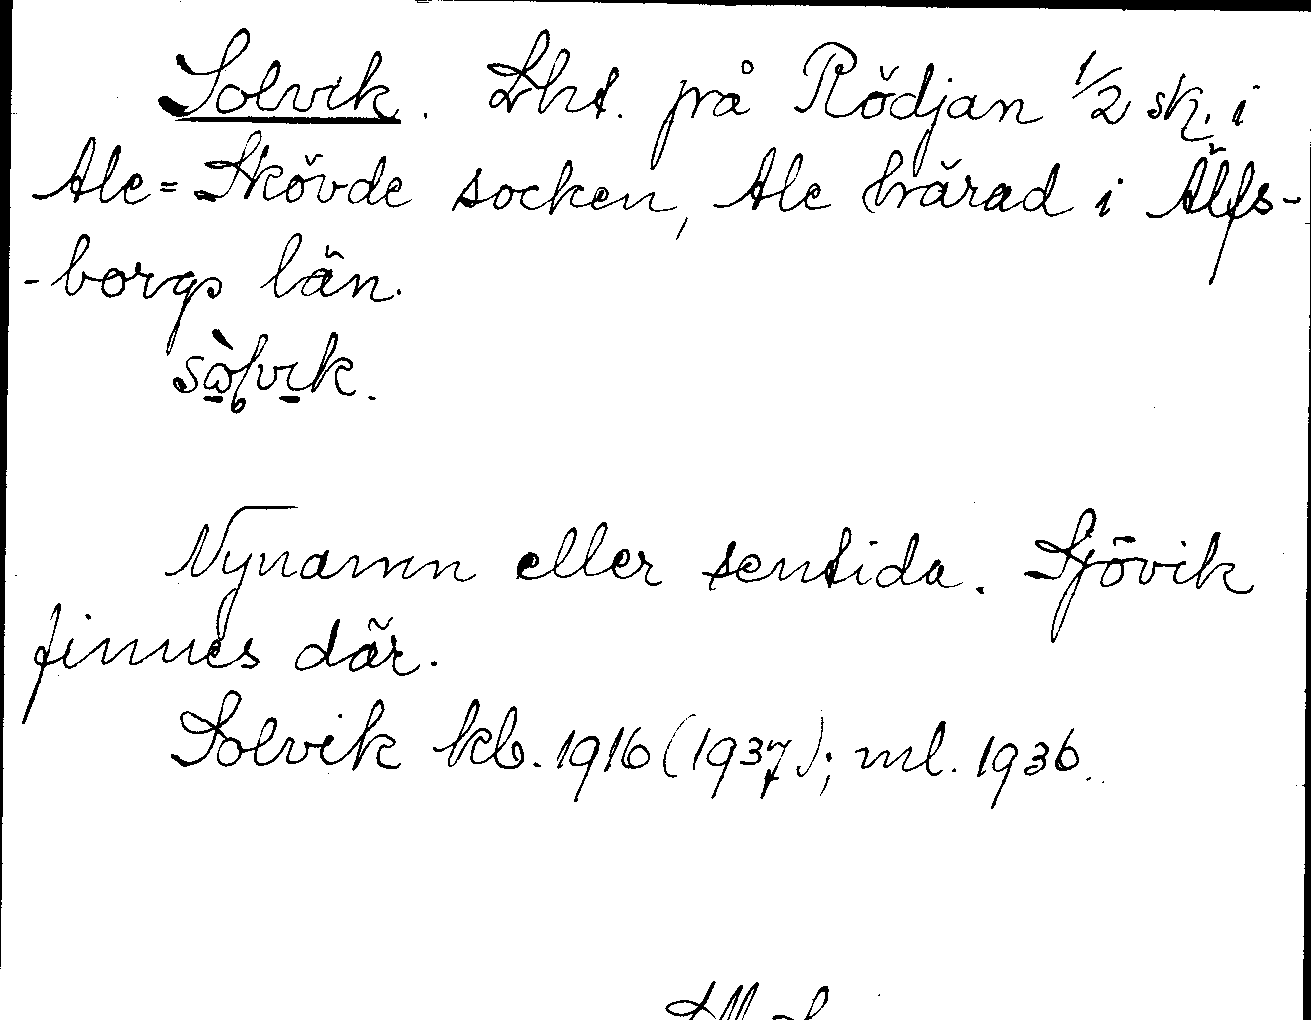 Solvik. Lht. på Rödjan 1/2 sk. i
Ale=Skövde socken, Ale härad i Älfs-
-borgs län.
sòlvik.
Nynamn eller sentida. Sjövik
finnes där.
Solvik kb. 1916 (1937); ml. 1936.